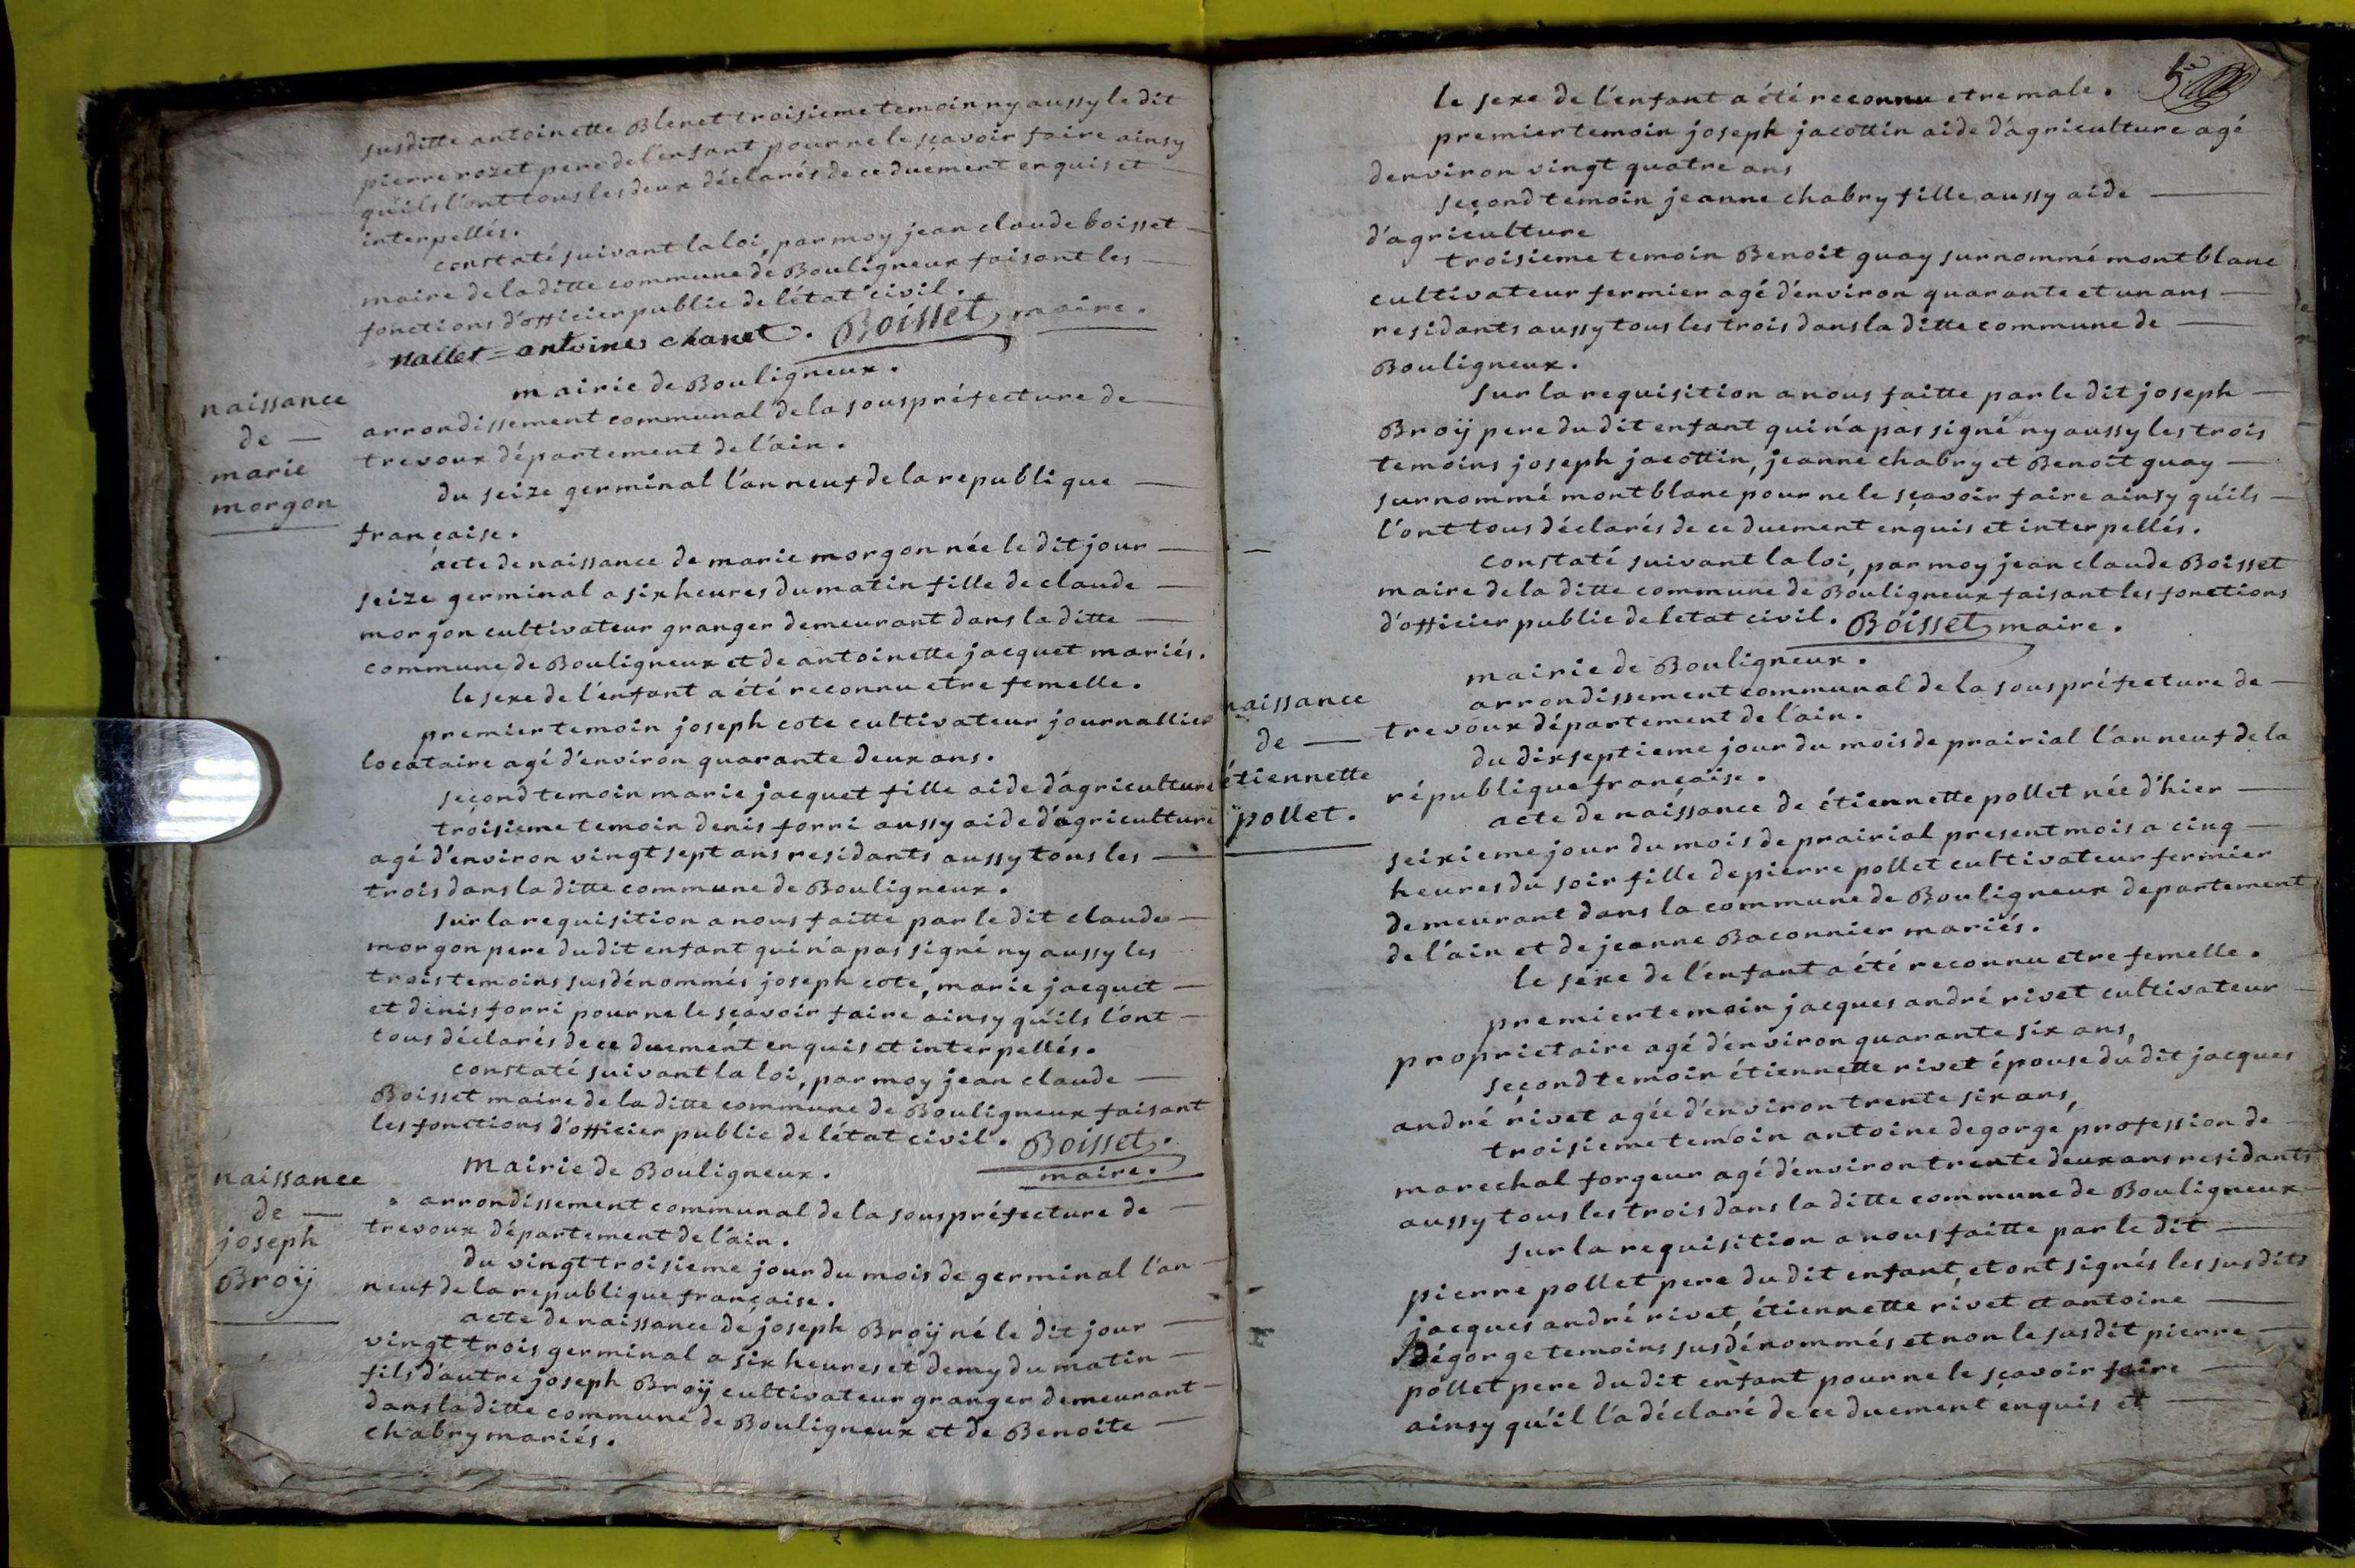 susditte antoinette Blenet troisieme temoin, ny aussy le dit
pierre rozet pere de l'enfant pour ne le sçavoir faire ainsy
qu'ils l'ont tous les deux déclarés de ce duement enquis et
interpellés.
constaté suivant la loi, par moy jean claude boisset
maire de la ditte commune de Bouligneux faisant les
fonctions d'officier public de l'état civil.
nallet = antoine chanet. Boisset, maire.
naissance
de
marie
morgon
mairie de Bouligneux.
arrondissement communal de la souspréfecture de
trevoux département de l'ain.
du seize germinal l'an neuf de la republique
française.
acte de naissance de marie morgon née le dit jour
seize germinal a six heures du matin fille de claude
morgon cultivateur granger demeurant dans la ditte
commune de Bouligneux et de antoinette jacquet mariés.
le sexe de l'enfant a été reconnu etre femelle.
premier temoin joseph cote cultivateur journallier
locataire agé d'environ quarante deux ans.
second temoin marie jacquet fille aide d'agriculture
troisieme temoin denis forri aussy aide d'agriculture
agé d'environ vingt sept ans residants aussy tous les
trois dans la ditte commune de Bouligneux.
sur la requisition a nous faitte par le dit claude
morgon pere du dit enfant qui n'a pas signé ny aussy les
trois temoins susdénommés joseph cote, marie jacquet
et denis forri pour ne le sçavoir faire ainsy qu'ils l'ont
tous déclarés de ce duement enquis et interpellés.
constaté suivant la loi, par moy jean claude
Boisset maire de la ditte commune de Bouligneux faisant
les fonctions d'officier public de l'état civil. Boisset.
maire.
naissance
de
joseph
Broÿ
mairie de Bouligneux.
arrondissement communal de la souspréfecture de
trevoux département de l'ain.
du vingt troisieme jour du mois de germinal l'an
neuf de la republique française.
acte de naissance de joseph Broÿ né le dit jour
vingt trois germinal a six heures et demy du matin
fils d'autre joseph Broÿ cultivateur granger demeurant
dans la ditte commune de Bouligneux et de Benoite
chabry mariés.
le sexe de l'enfant a été reconnu etre male.
premier temoin joseph jacottin aide d'agriculture agé
denviron vingt quatre ans
second temoin jeanne chabry fille aussy aide
d'agriculture
troisieme temoin Benoit quay surnommé montblanc
cultivateur fermier agé d'environ quarante et un ans
residants aussy tous les trois dans la ditte commune de
Bouligneux.
sur la requisition a nous faitte par le dit joseph
Broÿ pere du dit enfant qui n'a pas signé ny aussy les trois
temoins joseph jacottin, jeanne chabry et Benoit quay
surnommé montblanc pour ne le sçavoir faire ainsy qu'ils
l'ont tous déclarés de ce duement enquis et interpellés.
constaté suivant la loi, par moy jean claude Boisset
maire de la ditte commune de Bouligneux faisant les fonctions
d'officier public de letat civil. Boisset, maire.
naissance
de
étiennette
pollet.
mairie de Bouligneux.
arrondissement communal de la souspréfecture de
trevoux département de l'ain.
du dixseptieme jour du mois de prairial l'an neuf de la
république française.
acte de naissance de étiennette pollet née d'hier
seixieme jour du mois de prairial present mois a cinq
heures du soir fille de pierre pollet cultivateur fermier
demeurant dans la commune de Bouligneux departement
de l'ain et de jeanne Baconnier mariés.
le sexe de l'enfant a été reconnu etre femelle.
premier temoin jacques andré rivet cultivateur
proprietaire agé d'environ quarante six ans,
second temoin étiennette rivet épouse du dit jacques
andré rivet agée d'environ trente six ans,
troisieme temoin antoine degorge profession de
marechal forgeur agé d'environ trente deux ans residants
aussy tous les trois dans la ditte commune de Bouligneux
sur la requisition a nous faitte par le dit
pierre pollet pere du dit enfant, et ont signés les susdits
jacques andré rivet, étiennette rivet et antoine
dégorge temoins susdénommés et non le susdit pierre
pollet pere du dit enfant pour ne le sçavoir faire
ainsy qu'il l'a déclaré de ce duement enquis et